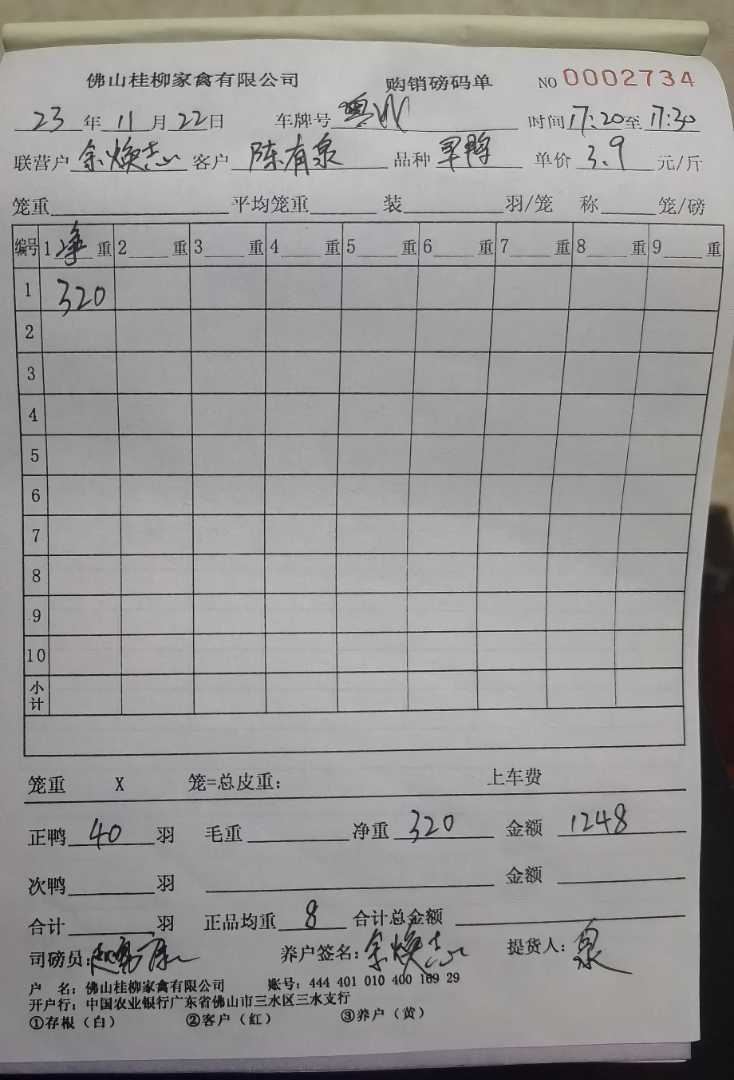 佛山桂柳家禽有限公司 购销磅码单 NO 0002734
23年 11月 22日 车牌号 粤 时间 17:20至 17:30
联营户 余焕志 客户 陈有泉 品种 单价 3.9 元/斤
笼重 平均笼重 装 羽/笼 称 笼/磅
编号 1 净 重 2 重 3 重 4 重 5 重 6 重 7 重 8 重 9 重
1 320
2
3
4
5
6
7
8
9
10
小计
笼重 X 笼=总皮重: 上车费
正鸭 40 羽 毛重 净重 320 金额 1248
次鸭 羽 金额
合计 羽 正品均重 8 合计总金额
司磅员: 养户签名: 余焕志 提货人: 泉
户 名: 佛山桂柳家禽有限公司 账号: 444 401 010 400 169 29
开户行: 中国农业银行广东省佛山市三水区三水支行
①存根(白) ②客户(红) ③养户(黄)